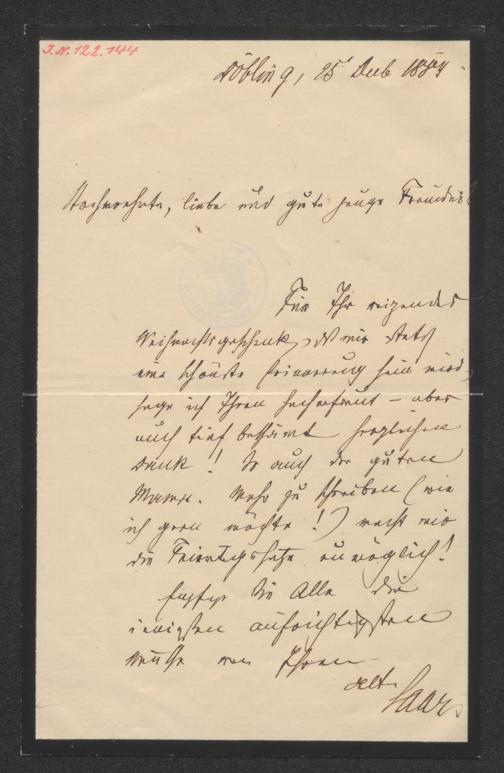 I.N. 122.144
Döbling, 25 Decb 1884.
Hochverehrte, liebe und gute junge Freundin!
Für Ihr reizendes
Weihnachtsgeschenk, das mir stets
eine schönste Erinnerung sein wird,
sage ich Ihnen hocherfreut – aber
auch tief beschämt herzlichen
Dank! So auch der guten
Mama. Mehr zu schreiben (wie
ich gern möchte!) macht mir
die Feiertagshetze unmöglich!
Empfangen Sie Alle die
innigsten aufrichtigsten
von Ihrem
alten
Saar